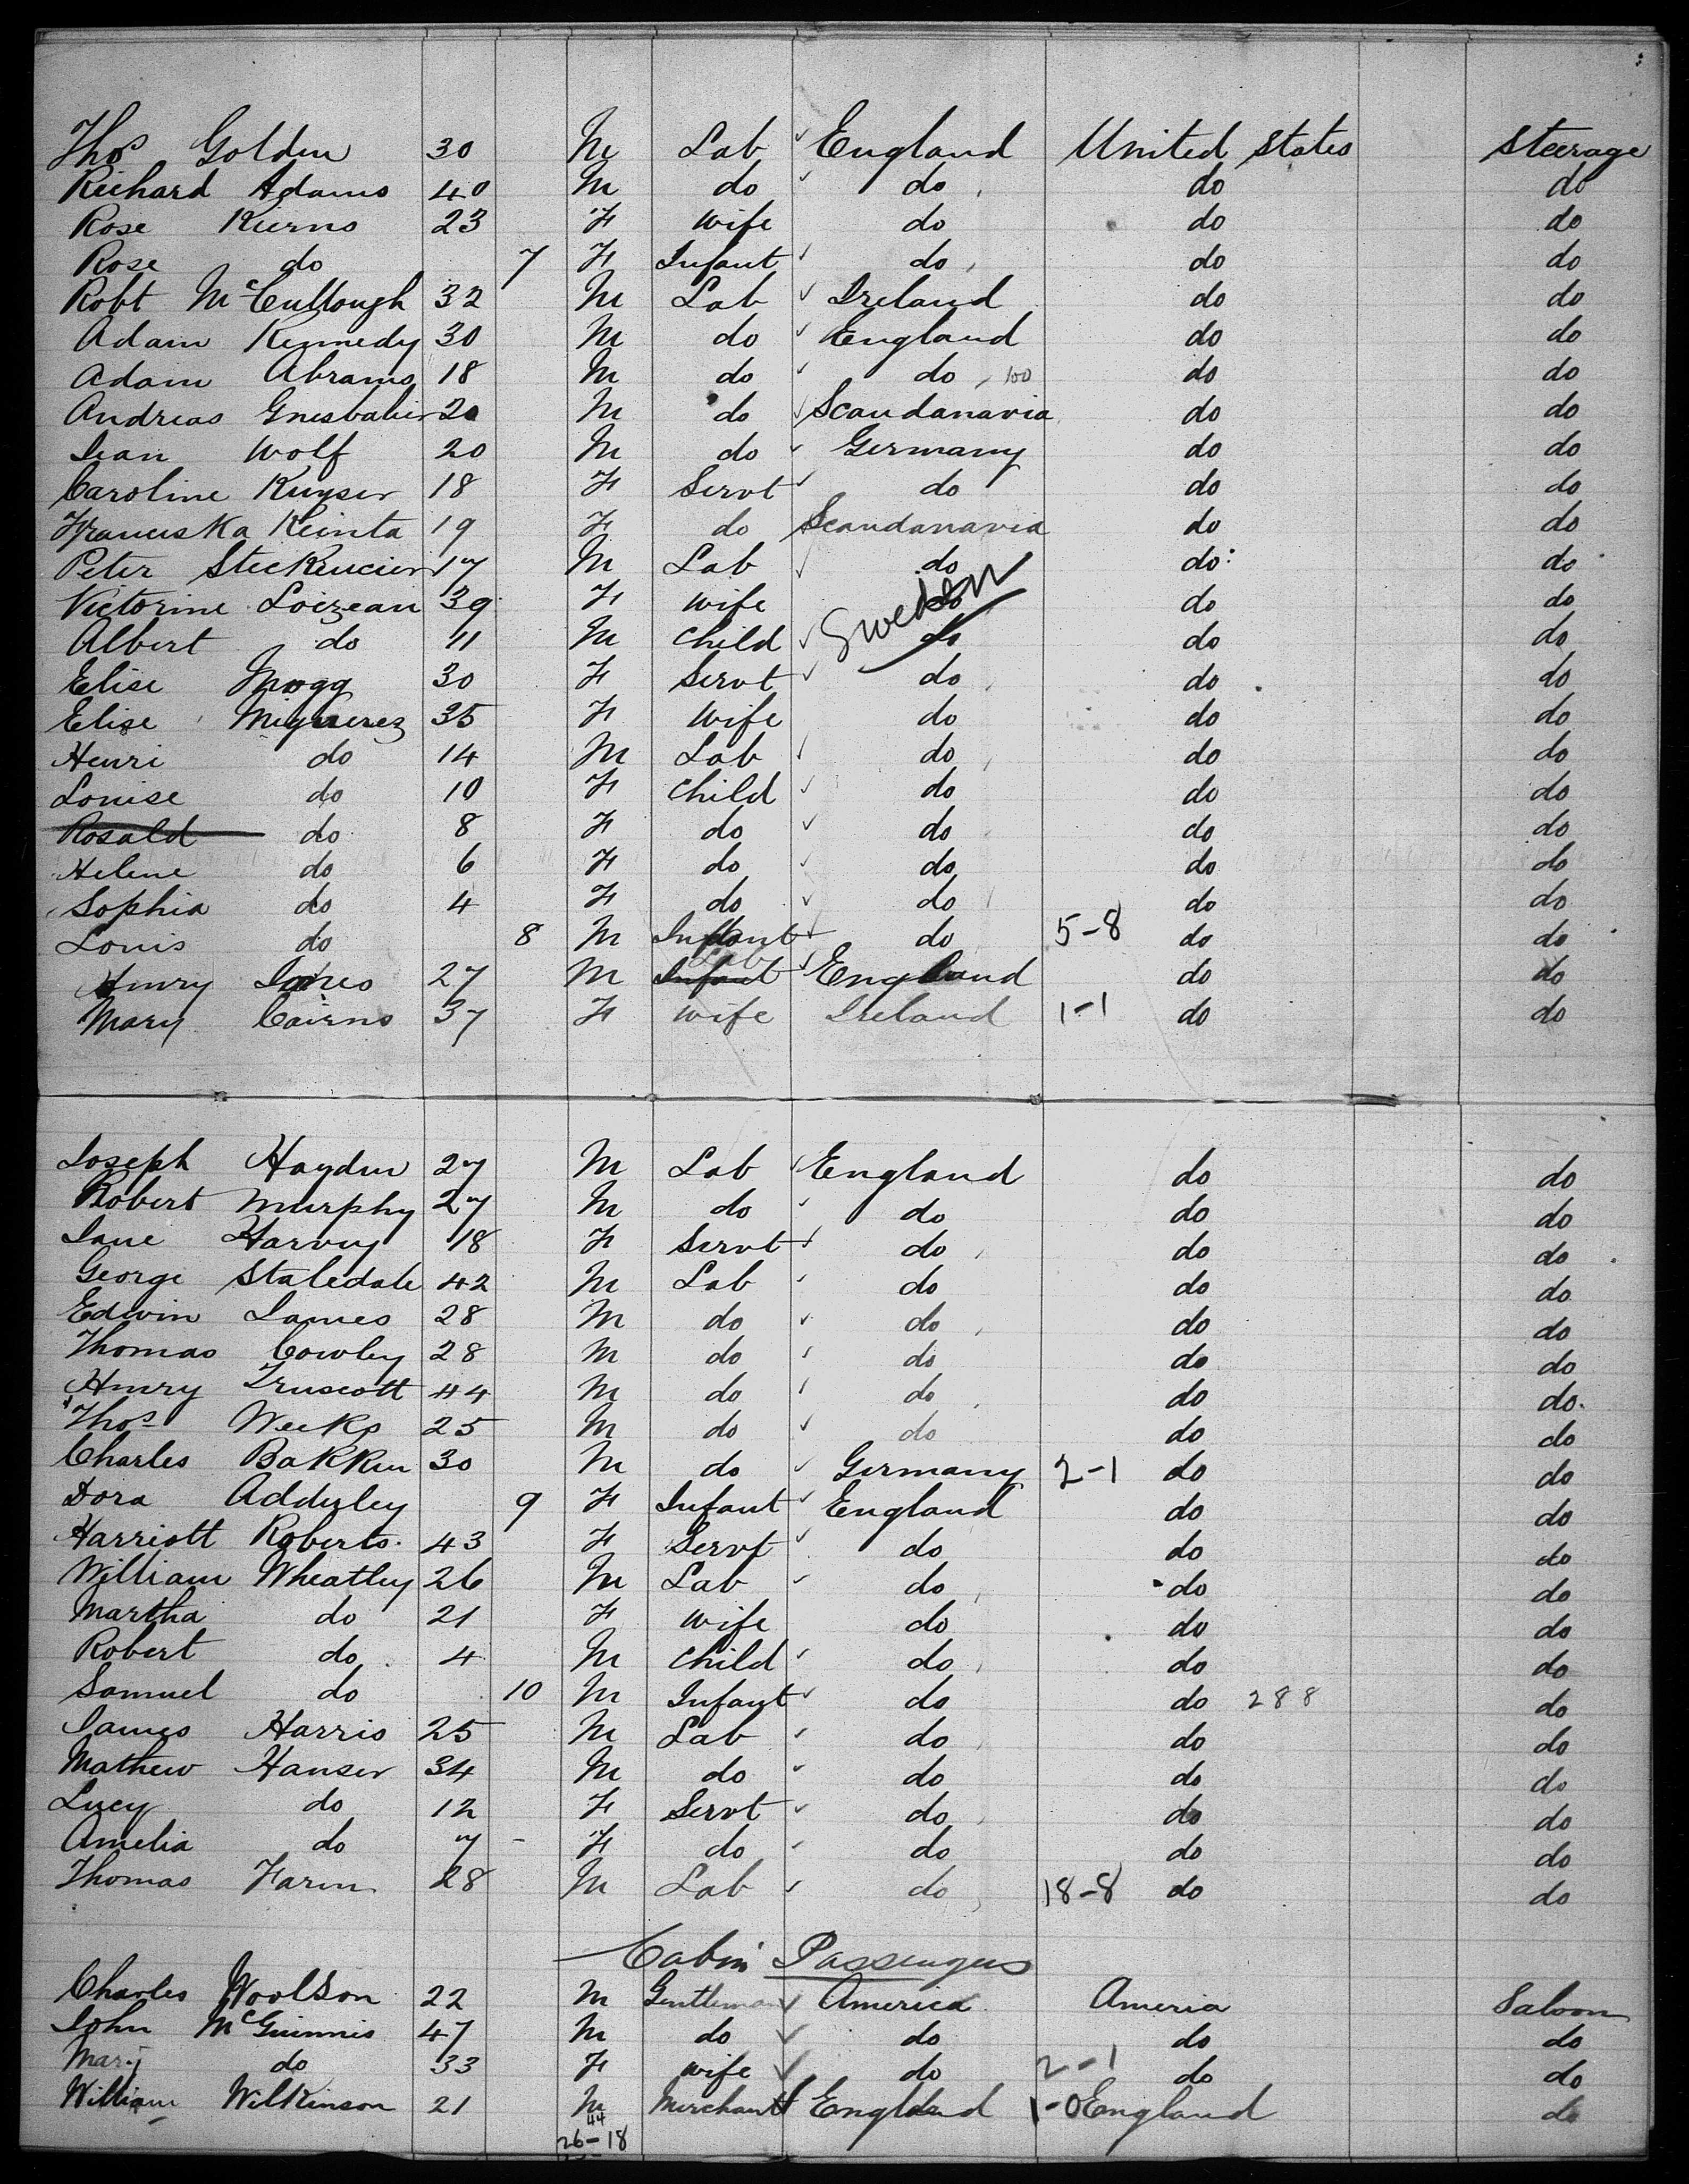 Thos Golden 30 M Lab England United States Steerage
Richard Adams 40 M do do do do
Rose Kierns 23 F Wife do do do
Rose do 7 F Infant do do do
Robt McCullough 32 M Lab Ireland do do
Adam Kennedy 30 M do England do do
Adam Abrams 18 M do do 100 do do
Andreas 20 M do Scandanavia do do
Jean Wolf 20 M do Germany do do
Caroline Kuyser 18 F Servt do do do
Franciska Keinta 19 F do Scandanavia do do
Peter 17 M Lab do do do
Victorine Loizeau 39 F Wife do do do
Sweden
Albert do 11 M Child do do do
Elise 30 F Servt do do do
Elise Miguerez 35 F Wife do do do
Henri do 14 M Lab do do do
Louise do 10 F Child do do do
Rosald do 8 F do do do do
Helene do 6 F do do do do
Sophia do 4 F do do do do
Louis do 8 M Infant do 5-8 do do
Lab
Henry Jones 27 M Infant England do do
Mary Cairns 37 F Wife Ireland 1-1 do do
Joseph Hayden 27 M Lab England do do
Robert Murphy 27 M do do do do
Jane Harvey 18 F Servt do do do
George Staledale 42 M Lab do do do
Edwin James 28 M do do do do
Thomas Cowley 28 M do do do do
Henry Truscott 44 M do do do do
Thos Weeks 25 M do do do do
Charles Bakken 30 M do Germany 2-1 do do
Dora Adderley 9 F Infant England do do
Harriott Roberts 43 F Servt do do do
William Wheatley 26 M Lab do do do
Martha do 21 F Wife do do do
Robert do 4 M Child do do do
Samuel do 10 M Infant do do 288 do
James Harris 25 M Lab do do do
Mathew Hanser 34 M do do do do
Lucy do 12 F Servt do do do
Amelia do 7 - F do do do do
Thomas Farin 28 M Lab do 18-8 do do
Cabin Passengers
Charles Woolson 22 M Gentleman America Ameria Saloon
John McGuinnis 47 M do do do do
Mary do 33 F Wife do 2-1 do do
William Wilkinson 21 M Merchant England 1-0 England do
44
26-18